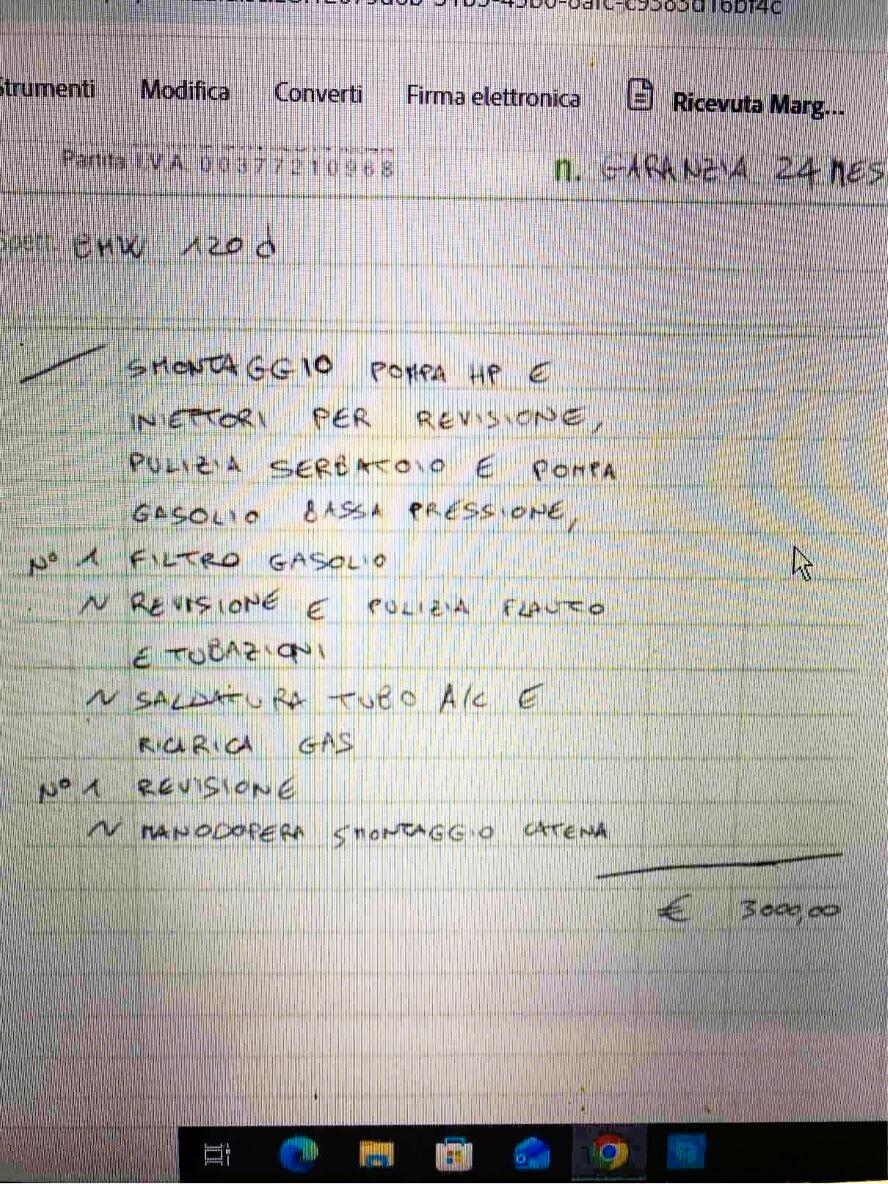 Strumenti Modifica Converti Firma elettronica Ricevuta Marg...
Partita I.V.A. 00377210968
n. GARANZIA 24 MES
Spett. BMW 120d
SMONTAGGIO POMPA HP E
INIETTORI PER REVISIONE,
PULIZIA SERBATOIO E POMPA
GASOLIO BASSA PRESSIONE,
N° 1 FILTRO GASOLIO
N REVISIONE E PULIZIA FLAUTO
E TUBAZIONI
N SALDATURA TUBO A/C E
RICARICA GAS
N° 1 REVISIONE
N MANODOPERA SMONTAGGIO CATENA
€ 3000,00